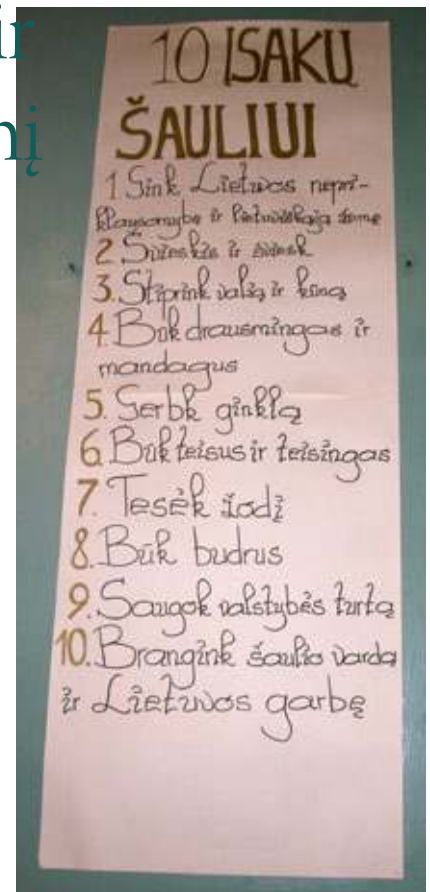 ir
nį
10 ĮSAKŲ
ŠAULIUI
1 Gink Lietuvos nepri-
klausomybę ir lietuviškąją žemę
2. Švieskis ir šviesk
3. Stiprink valią ir kūną
4. Būk drausmingas ir
mandagus
5. Gerbk ginklą
6. Būk teisus ir teisingas
7. Tesėk žodį
8. Būk budrus
9. Saugok valstybės turtą
10. Brangink šaulio vardą
ir Lietuvos garbę